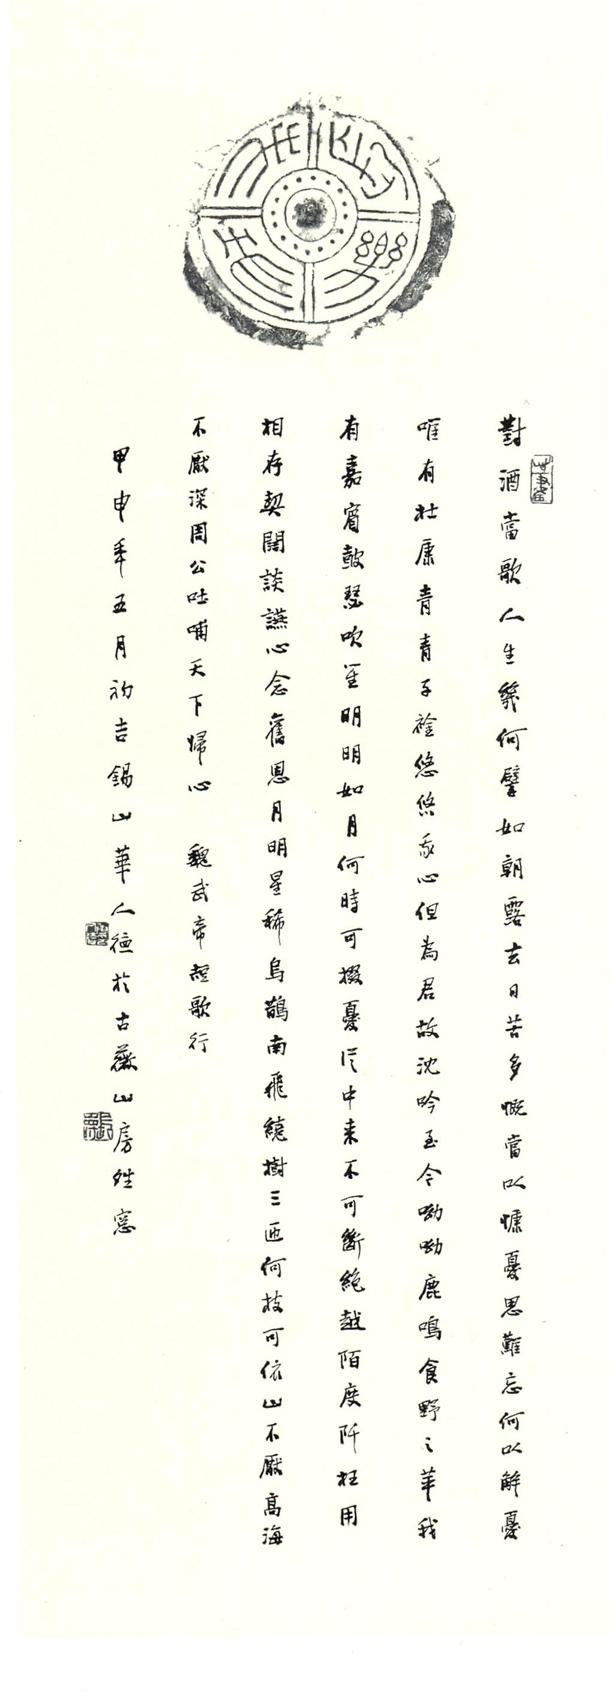 對酒當歌人生幾何譬如朝露去日苦多慨當以慷憂思難忘何以解憂
唯有杜康青青子衿悠悠我心但為君故沈吟至今呦呦鹿鳴食野之苹我
有嘉賓鼓瑟吹笙明明如月何時可掇憂從中来不可斷絶越陌度阡枉用
相存契闊談讌心念舊恩月明星稀烏鵲南飛繞樹三匝何枝可依山不厭高海
不厭深周公吐哺天下歸心 魏武帝短歌行
甲申年五月初吉錫山華人德於古薇山房窓